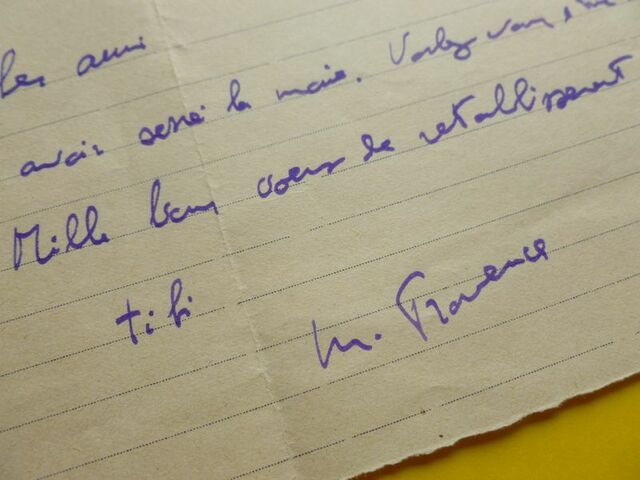 les amis
avoir serré la main. Voulez vous
Mille bons voeux de retablissement
tibi
M. Provence